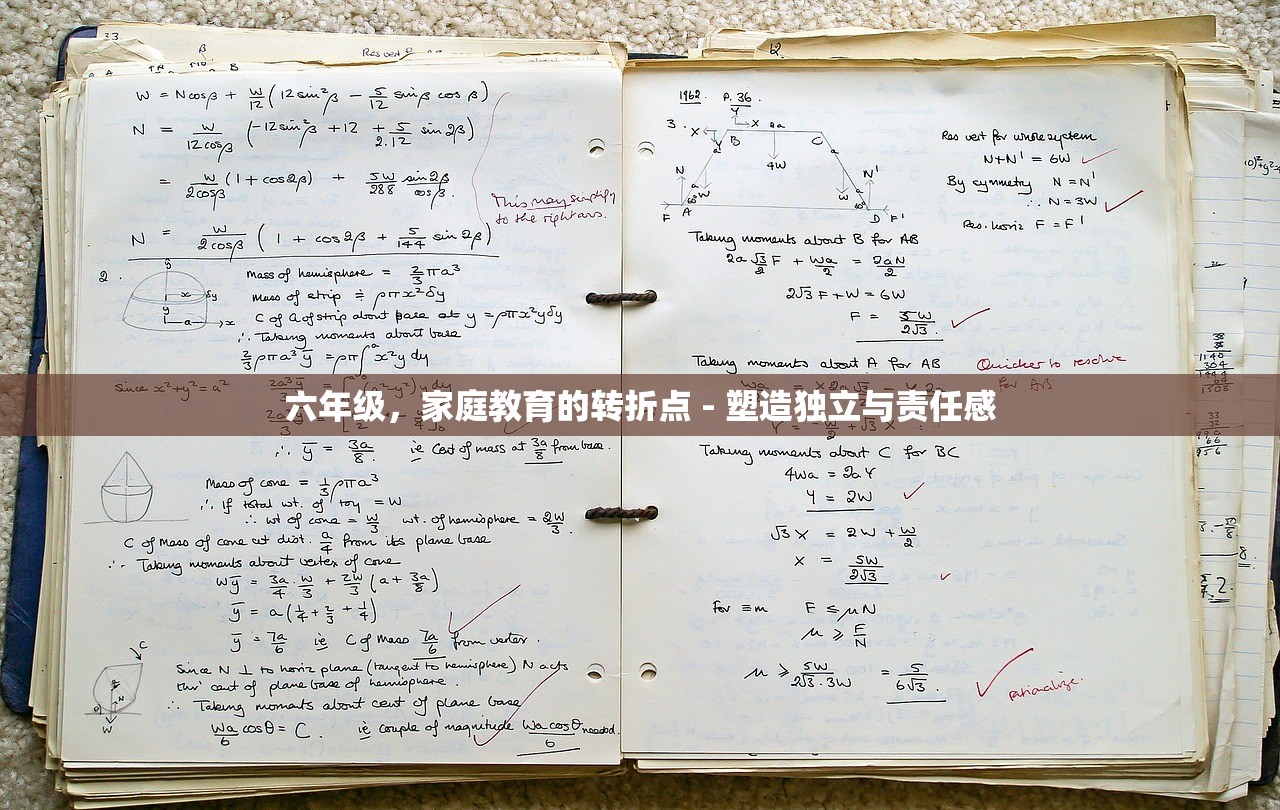 33.
β
A
B
W = N cos β + W/12 (12 sin²β − 5/12 sin β cos β)
N = W/12cosβ (−12 sin²β + 12 + 5/2.12 sin 2β)
= W/2cosβ (1 + cos 2β) + 5W/288 sin 2β/cos β.
This may simplify
to the right ans.
N = W/2cosβ (1 + cos 2β + 5/144 sin 2β)
2.
Mass of hemisphere = 2/3 πa³
Mass of strip ≑ ρπx²δy
C of G of strip about base at y = ρπx²yδy
∴ Taking moments about base
2/3 ρπa³ȳ = ρπ∫ᵃ x²y dy
Since x²+y² = a²
六年级，家庭教育的转折点 - 塑造独立与责任感
∴ ȳ = 3a/8 ie Cent of mass at 3a/8 from base.
Mass of cone = 1/3 ρπa³
∴ If total wt. of toy = W
∴ wt of cone = W/3 wt. of hemisphere = 2W/3.
C of Mass of cone at dist. a/4 from its plane base
∴ Taking moments about vertex of cone
Wȳ = 3a/4 . W/3 + 2W/3 (a + 3a/8)
ȳ = a(1/4 + 2/3 + 1/4)
ȳ = 7a/6 ie C of Mass 7a/6 from vertex.
Since N ⊥ to horiz plane (tangent to hemisphere) N acts
thro' cent of plane base of hemisphere.
∴ Taking moments about cent of plane base
Wa/6 cos θ = C. ie couple of magnitude Wa cos θ/6 needed.
C
N
W
12.
1962. P. 36.
3.
Y
X
2a
X
B
C
4W
N
N'
W
W
60°
60°
F
A
D
F'
Res vert for whole system
N+N' = 6W
By symmetry N = N'
∴ N = 3W
Res. horiz F = F'
Taking moments about B for AB
2a √3/2 F + Wa/2 = 2aN/2
2√3 F + W = 6W
F = 5W/2√3.
Taking moments about A for AB
Quicker to resolve
for AB
Taking moments about C for BC
4Wa = 2aY
Y = 2W
√3 X = 2W + W/2
X = 5W/2√3
For ≡m F ≤ μN
μ ≥ F/N
μ ≥ 5W/2√3.3W = 5/6√3.
rationalize.